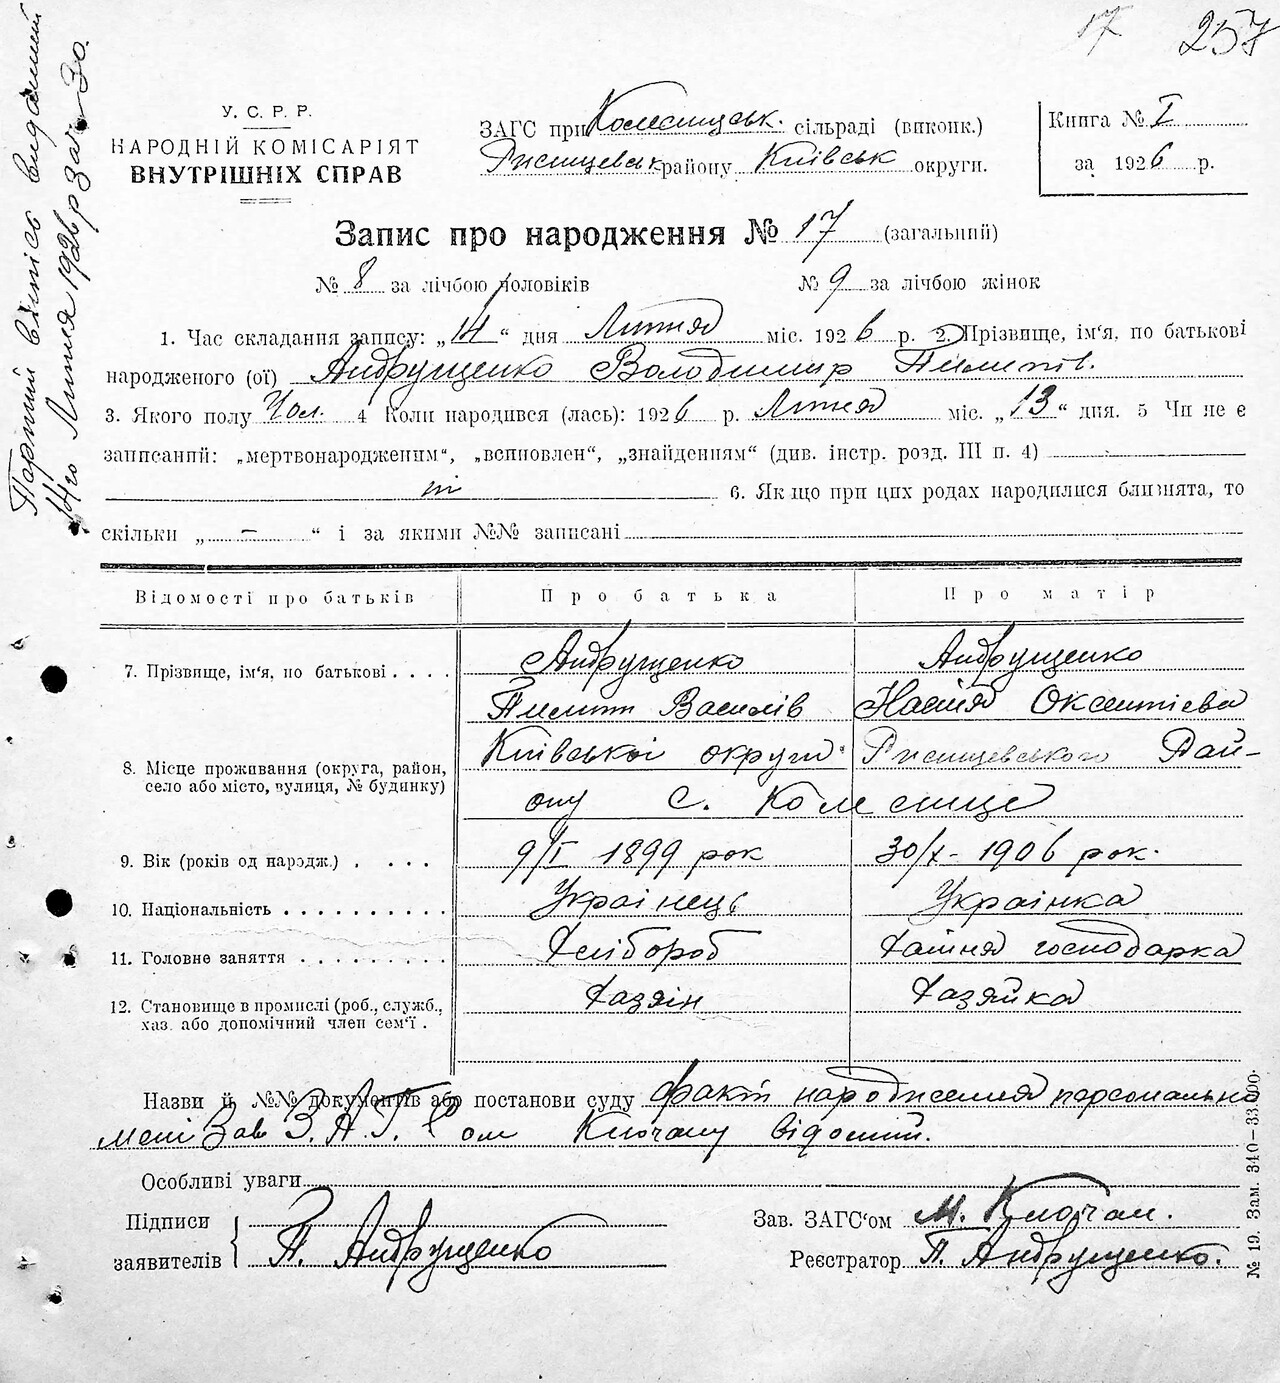 17 257
Парний витис виданий
14го Липня 1926 р за № 30.
У. С. Р. Р.
НАРОДНІЙ КОМІСАРІЯТ
ВНУТРІШНІХ СПРАВ
ЗАГС при Колесищськ. сільраді (виконк.)
Ржищевськ району Київськ округи.
Книга № I
за 1926 р.
Запис про народження № 17 (загальний)
№ 8 за лічбою чоловіків № 9 за лічбою жінок
1. Час складання запису: „14“ дня Липня міс. 1926 р. 2. Прізвище, ім‘я, по батькові
народженого (ої) Андрущенко Володимир Пилипів.
3. Якого полу Чол. 4 Коли народився (лась): 1926 р. Липня міс. „13“ дня. 5 Чи не є
записаний: „мертвонародженим“, „всиновлен“, „знайденням“ (див. інстр. розд. III п. 4)
ні 6. Якщо при цих родах народилися близнята, то
скільки „ – “ і за якими №№ записані
Відомості про батьків Про батька Про матір
7. Прізвище, ім‘я, по батькові . . . . Андрущенко Андрущенко
Пилип Василів Настя Оксентієва
8. Місце проживання (округа, район, село або місто, вулиця, № будинку) Київської округи Ржищевського Рай-
ону с. Колесище
9. Вік (років од народж.) . . . . . 9/I 1899 рок 30/X - 1906 рок.
10. Національність . . . . . . . . . . Українець Українка
11. Головне заняття . . . . . . . . . Хлібороб Хатня господарка
12. Становище в промислі (роб., служб., хаз. або допомічний член сем‘ї . Хазяїн Хазяйка
Назви й №№ документів або постанови суду факт народження персонально
мені Зав З.А.Г.С ом Клочану відомий.
Особливі уваги
Підписи
заявителів П. Андрущенко
Зав. ЗАГС‘ом М. Клочан.
Реєстратор П. Андрущенко.
№ 19. Зам. 340—33.000.